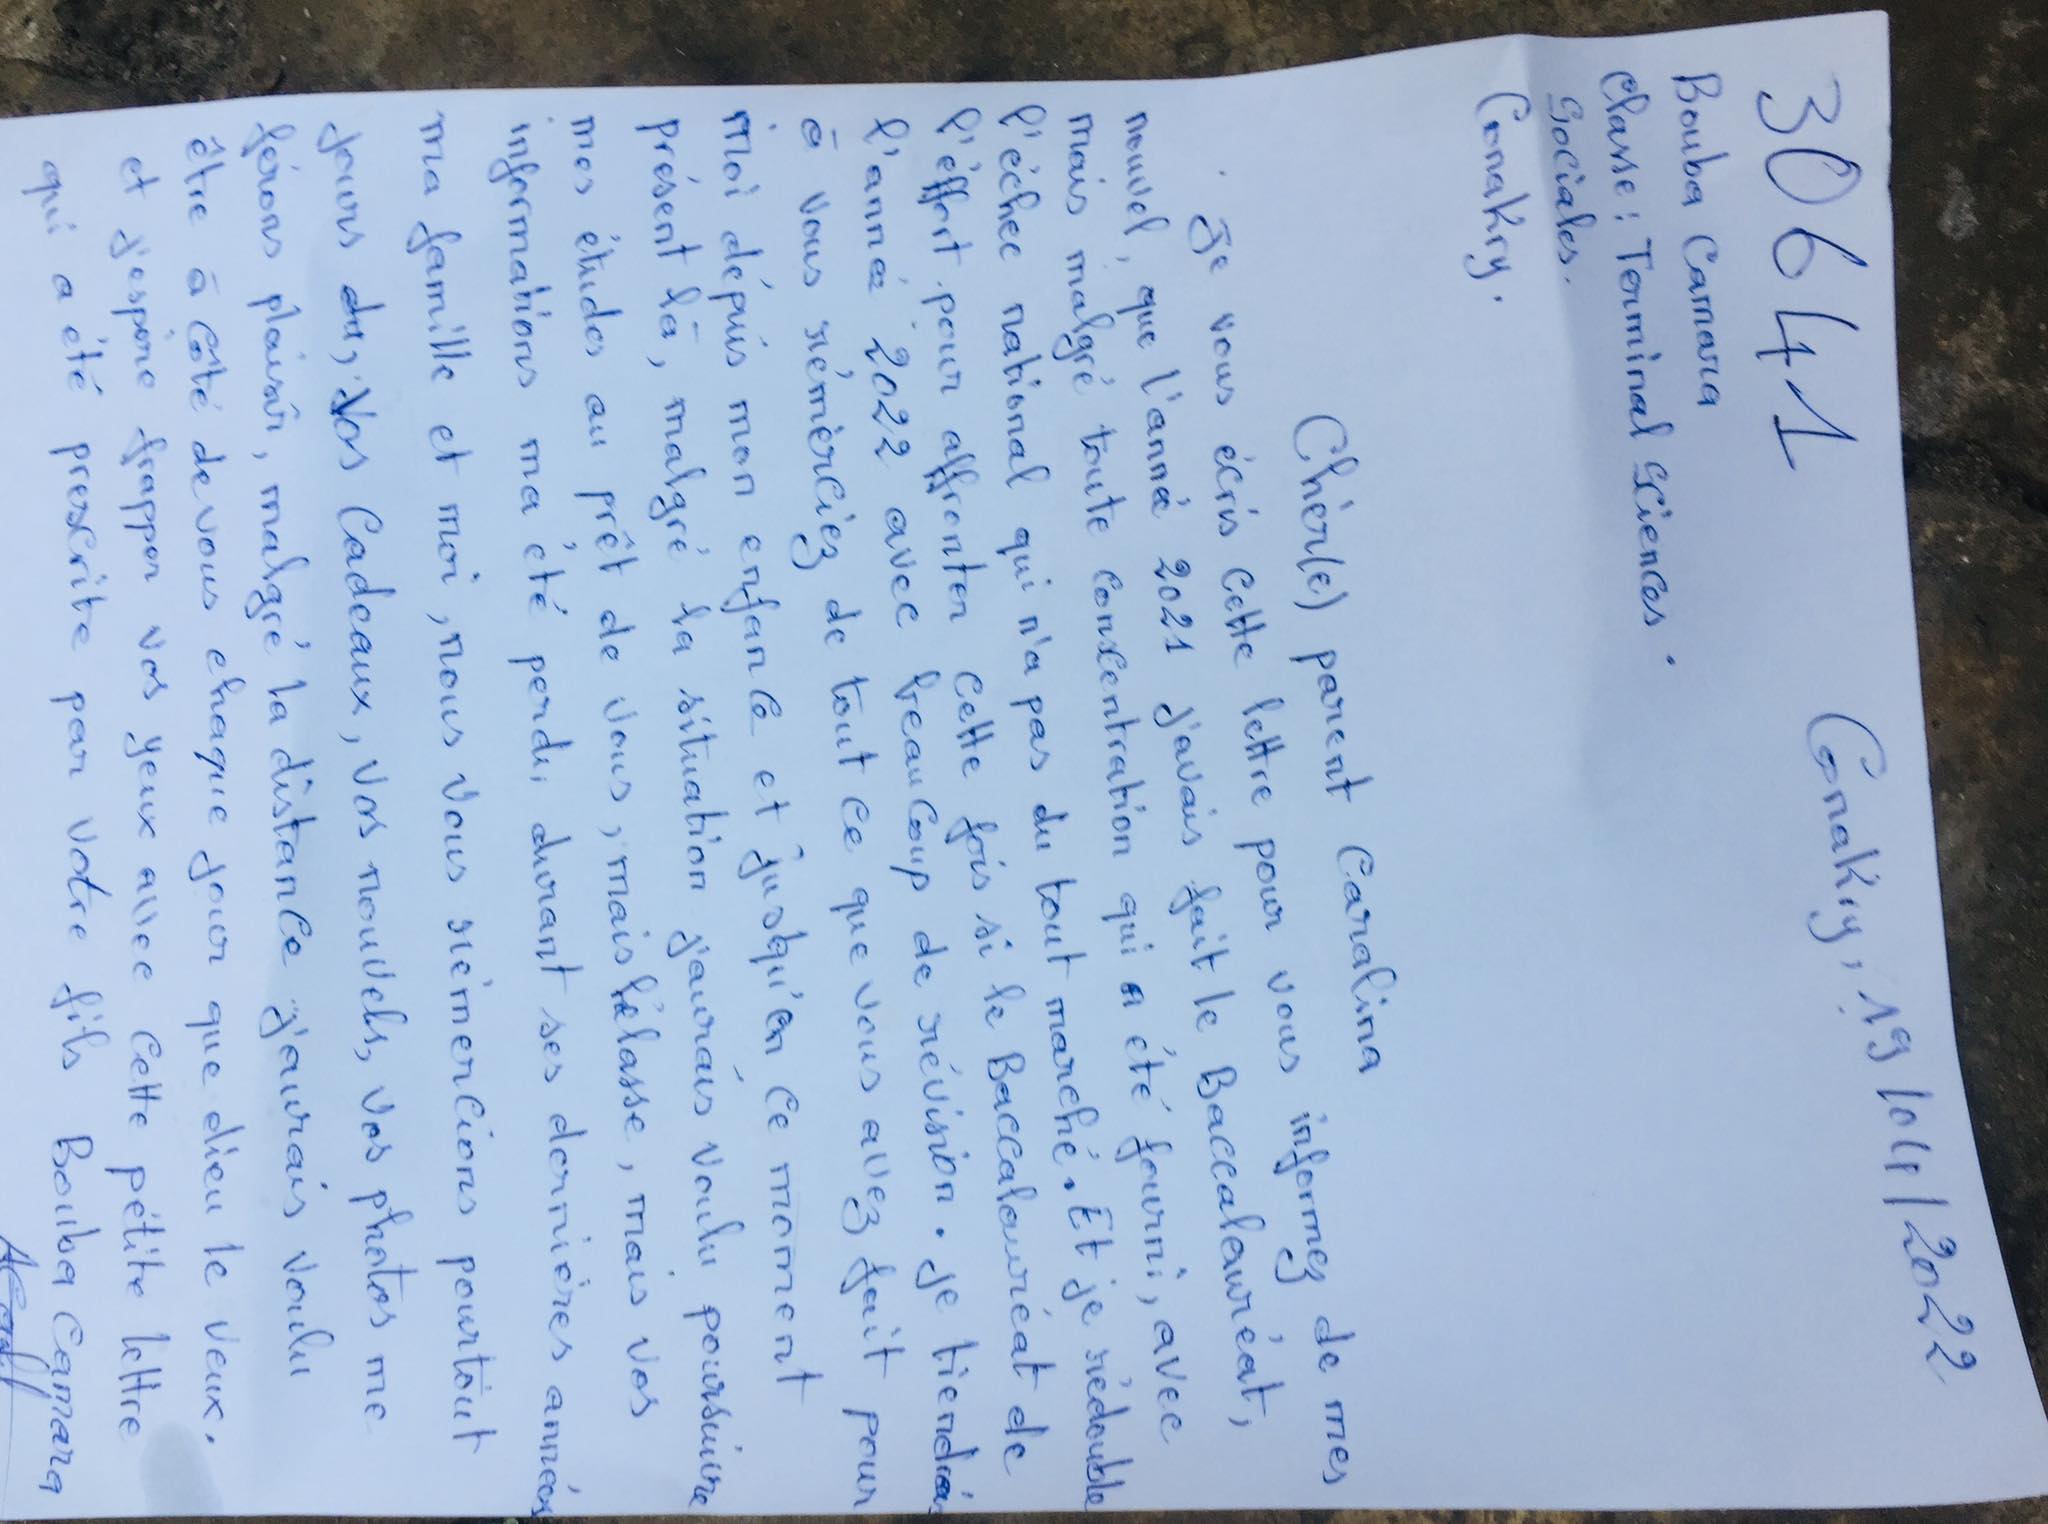 30641
Conakry, 19/04/2022
Bouba Camara
Classe: Terminal Sciences
Sociales.
Conakry.
Chèr(e) parent Caralina
Je vous écris cette lettre pour vous informez de mes
nouvel, que l'année 2021 j'avais fait le Baccalauréat,
mais malgré toute consentration qui a été fourni, avec
l'échec national qui n'a pas du tout marché. Et je rédouble
l'éffort pour affronter cette fois si le Baccalauréat de
l'année 2022 avec beaucoup de révision. je tiendrais
à vous rémèrciez de tout ce que vous avez fait pour
moi dépuis mon enfance et jusqu'en ce moment
présent là, malgré la situation j'aurais voulu poursuivre
mes études au prêt de vous, mais hélasse, mais vos
informations ma été perdu durant ses dernières années
ma famille et moi, nous vous rémercions pourtout
jours du, Vos Cadeaux, vos nouvels, vos photos me
férons plaisir, malgré la distance j'aurais voulu
être à côté de vous chaque jour que dieu le veux.
et j'espère frapper vos yeux avec cette pétite lettre
qui a été prescrite par votre fils Bouba Camara